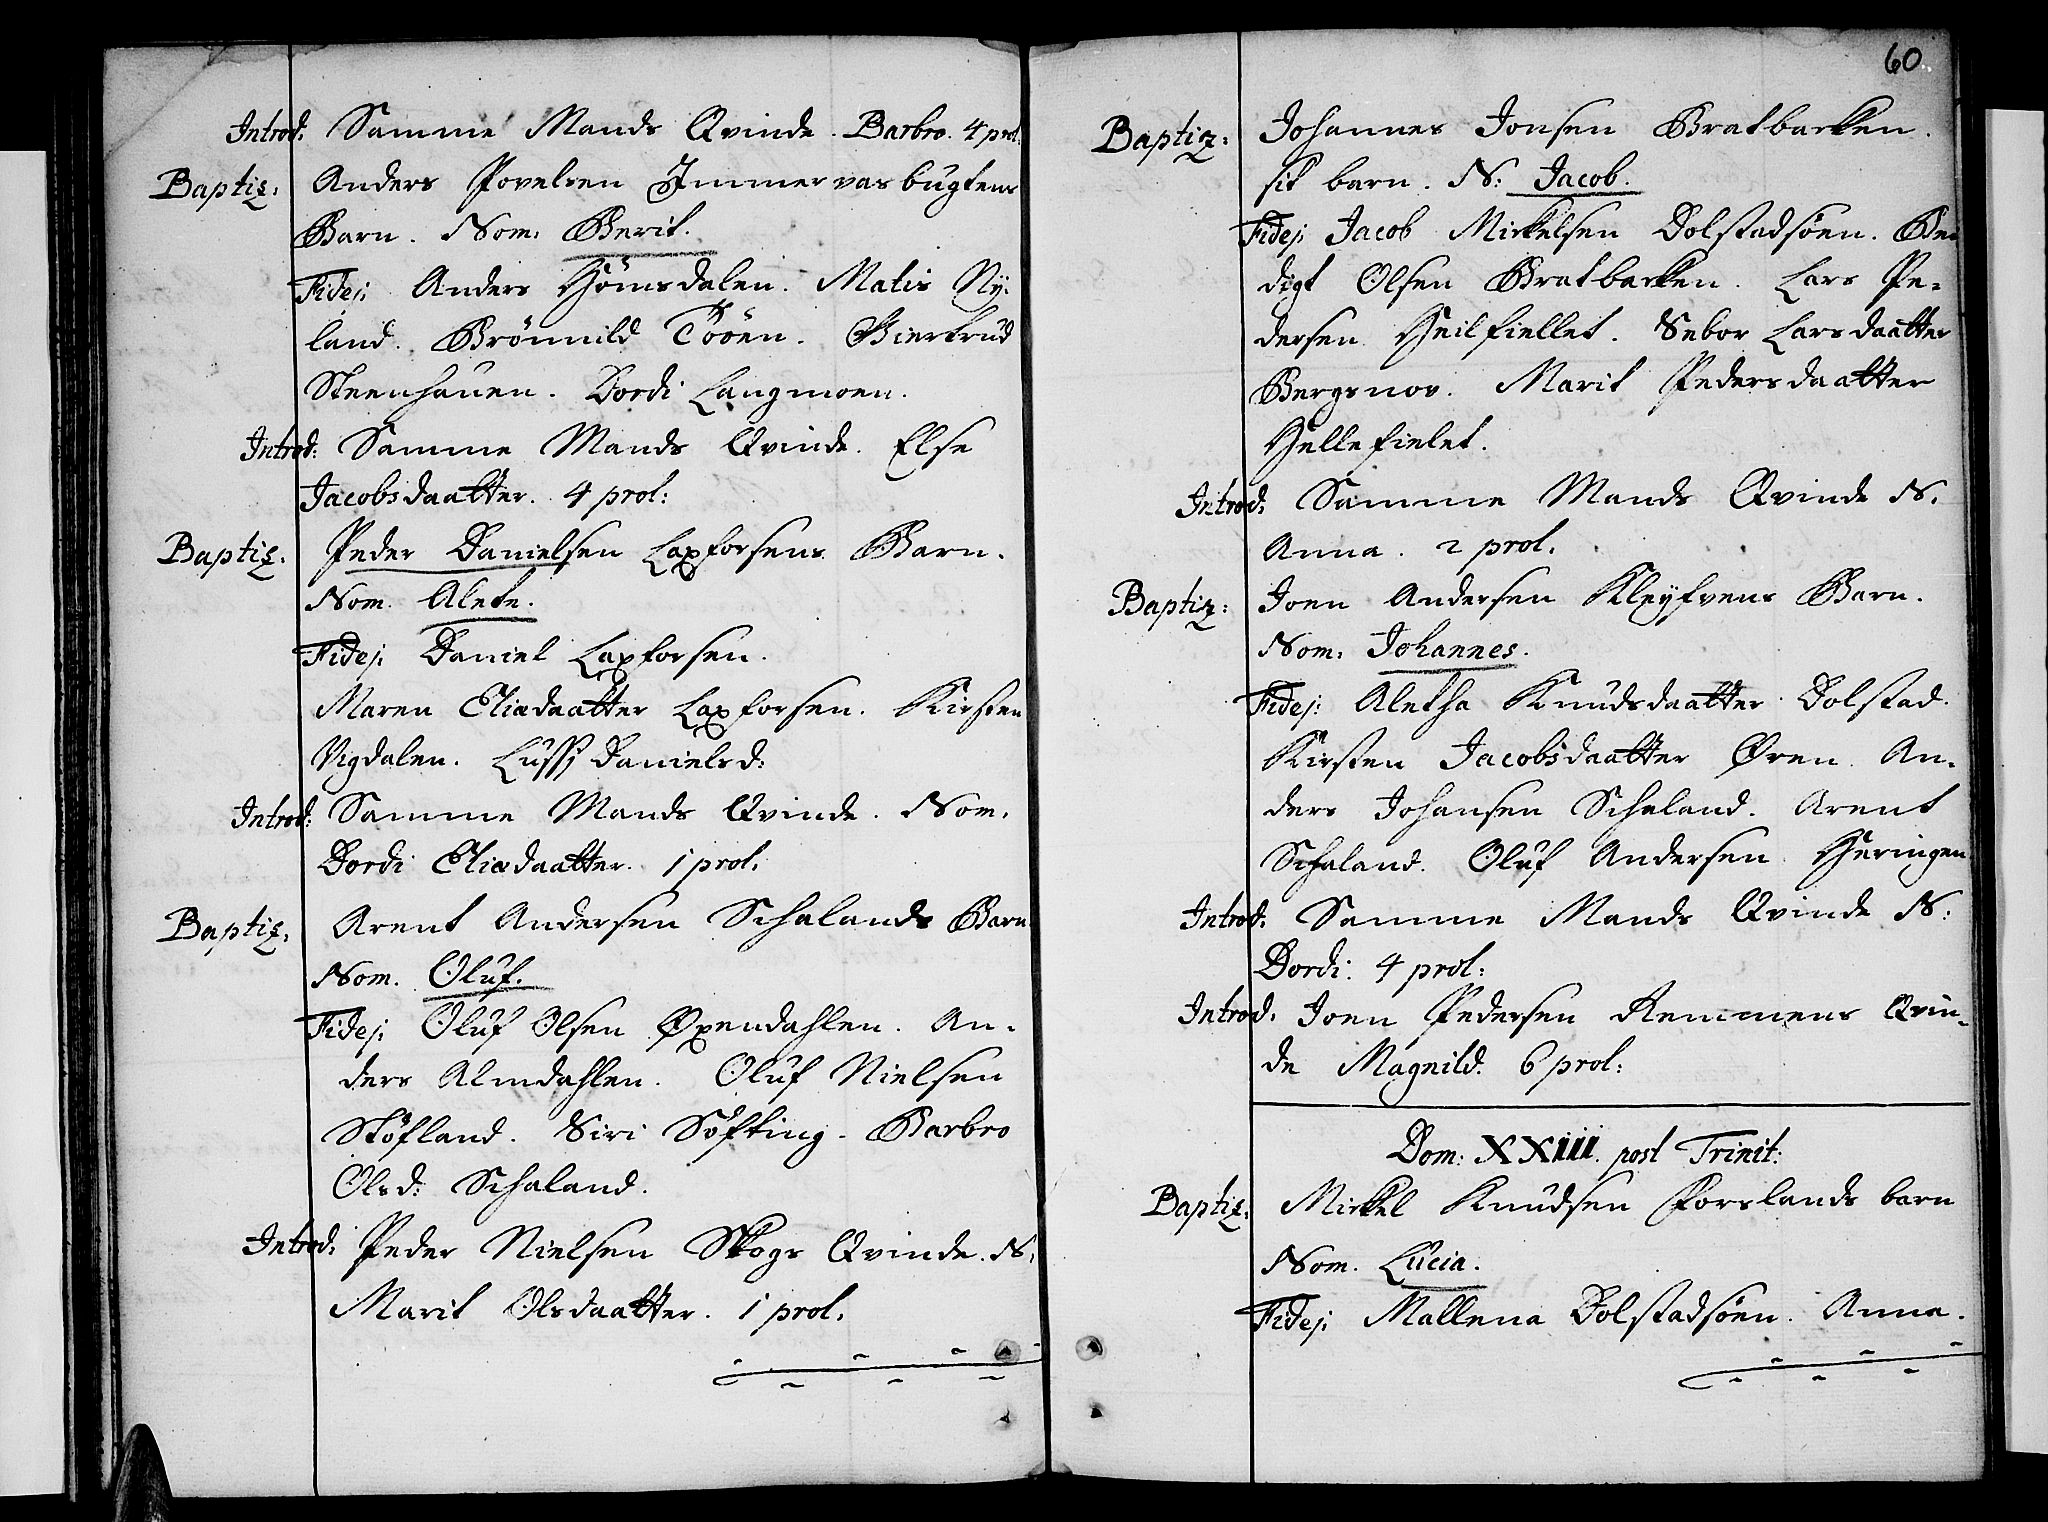 Introd: Samme Mands Qvinde. Barbro. 4 prol:
Baptiz: Anders Povelsen Immervasbugtens
Barn. Nom: Berit.
Fidej: Anders Hömsdalen. Matis Ny-
land. Brönnild Toöen. Giertrud
Steenhauen. Dordi Langmoen.
Introd: Samme Mands Qvinde. Else
Jacobsdaatter. 4 prol:
Baptiz: Peder Danielsen Laxforsens Barn.
Nom. Alete.
Fidej: Daniel Laxforsen.
Maren Eliædaatter Laxforsen. Kirsten
Vigdalen. Lussj Danielsd:
Introd: Samme Mands Qvinde. Nom.
Dordi Eliædaatter. 1 prol.
Baptiz: Arent Andersen Schalands Barn
Nom. Oluf.
Fidej: Oluf Olsen Øxendahlen. An-
ders Almdahlen. Oluf Nielsen
Stöfland. Siri Söfting. Barbro
Olsd: Schaland.
Introd: Peder Nielsen Skogs Qvinde. N.
Marit Olsdaatter. 1 prol.
60
Baptiz: Johannes Jonsen Bratbacken.
sit barn. N: Jacob.
Fidej: Jacob Mickelsen Dolstadsöen. Ben
digt Olsen Bratbacken. Lars Pe-
dersen Heilfiellet. Sebor Larsdaatter
Bergsnov. Marit Pedersdaatter
Hellefielet.
Introd: Samme Mands Qvinde N.
Anna. 2 prol.
Baptiz: Joen Andersen Kleyfvens Barn.
Nom: Johannes.
Fidej: Aletha Knudsdaatter Dolstad.
Kirsten Jacobsdaatter Øren. An-
ders Johansen Schaland. Arent
Schaland. Oluf Andersen Heringen
Introd: Samme Mands Qvinde N:
Dordi. 4 prol:
Introd: Joen Pedersen Remmens Qvin-
de Magnild. 6 prol:
Dom: XXIII. post Trinit:
Baptiz: Mickel Knudsen Forslands barn
Nom. Lucia.
Fidej: Mallena Dolstadsöen. Anna.